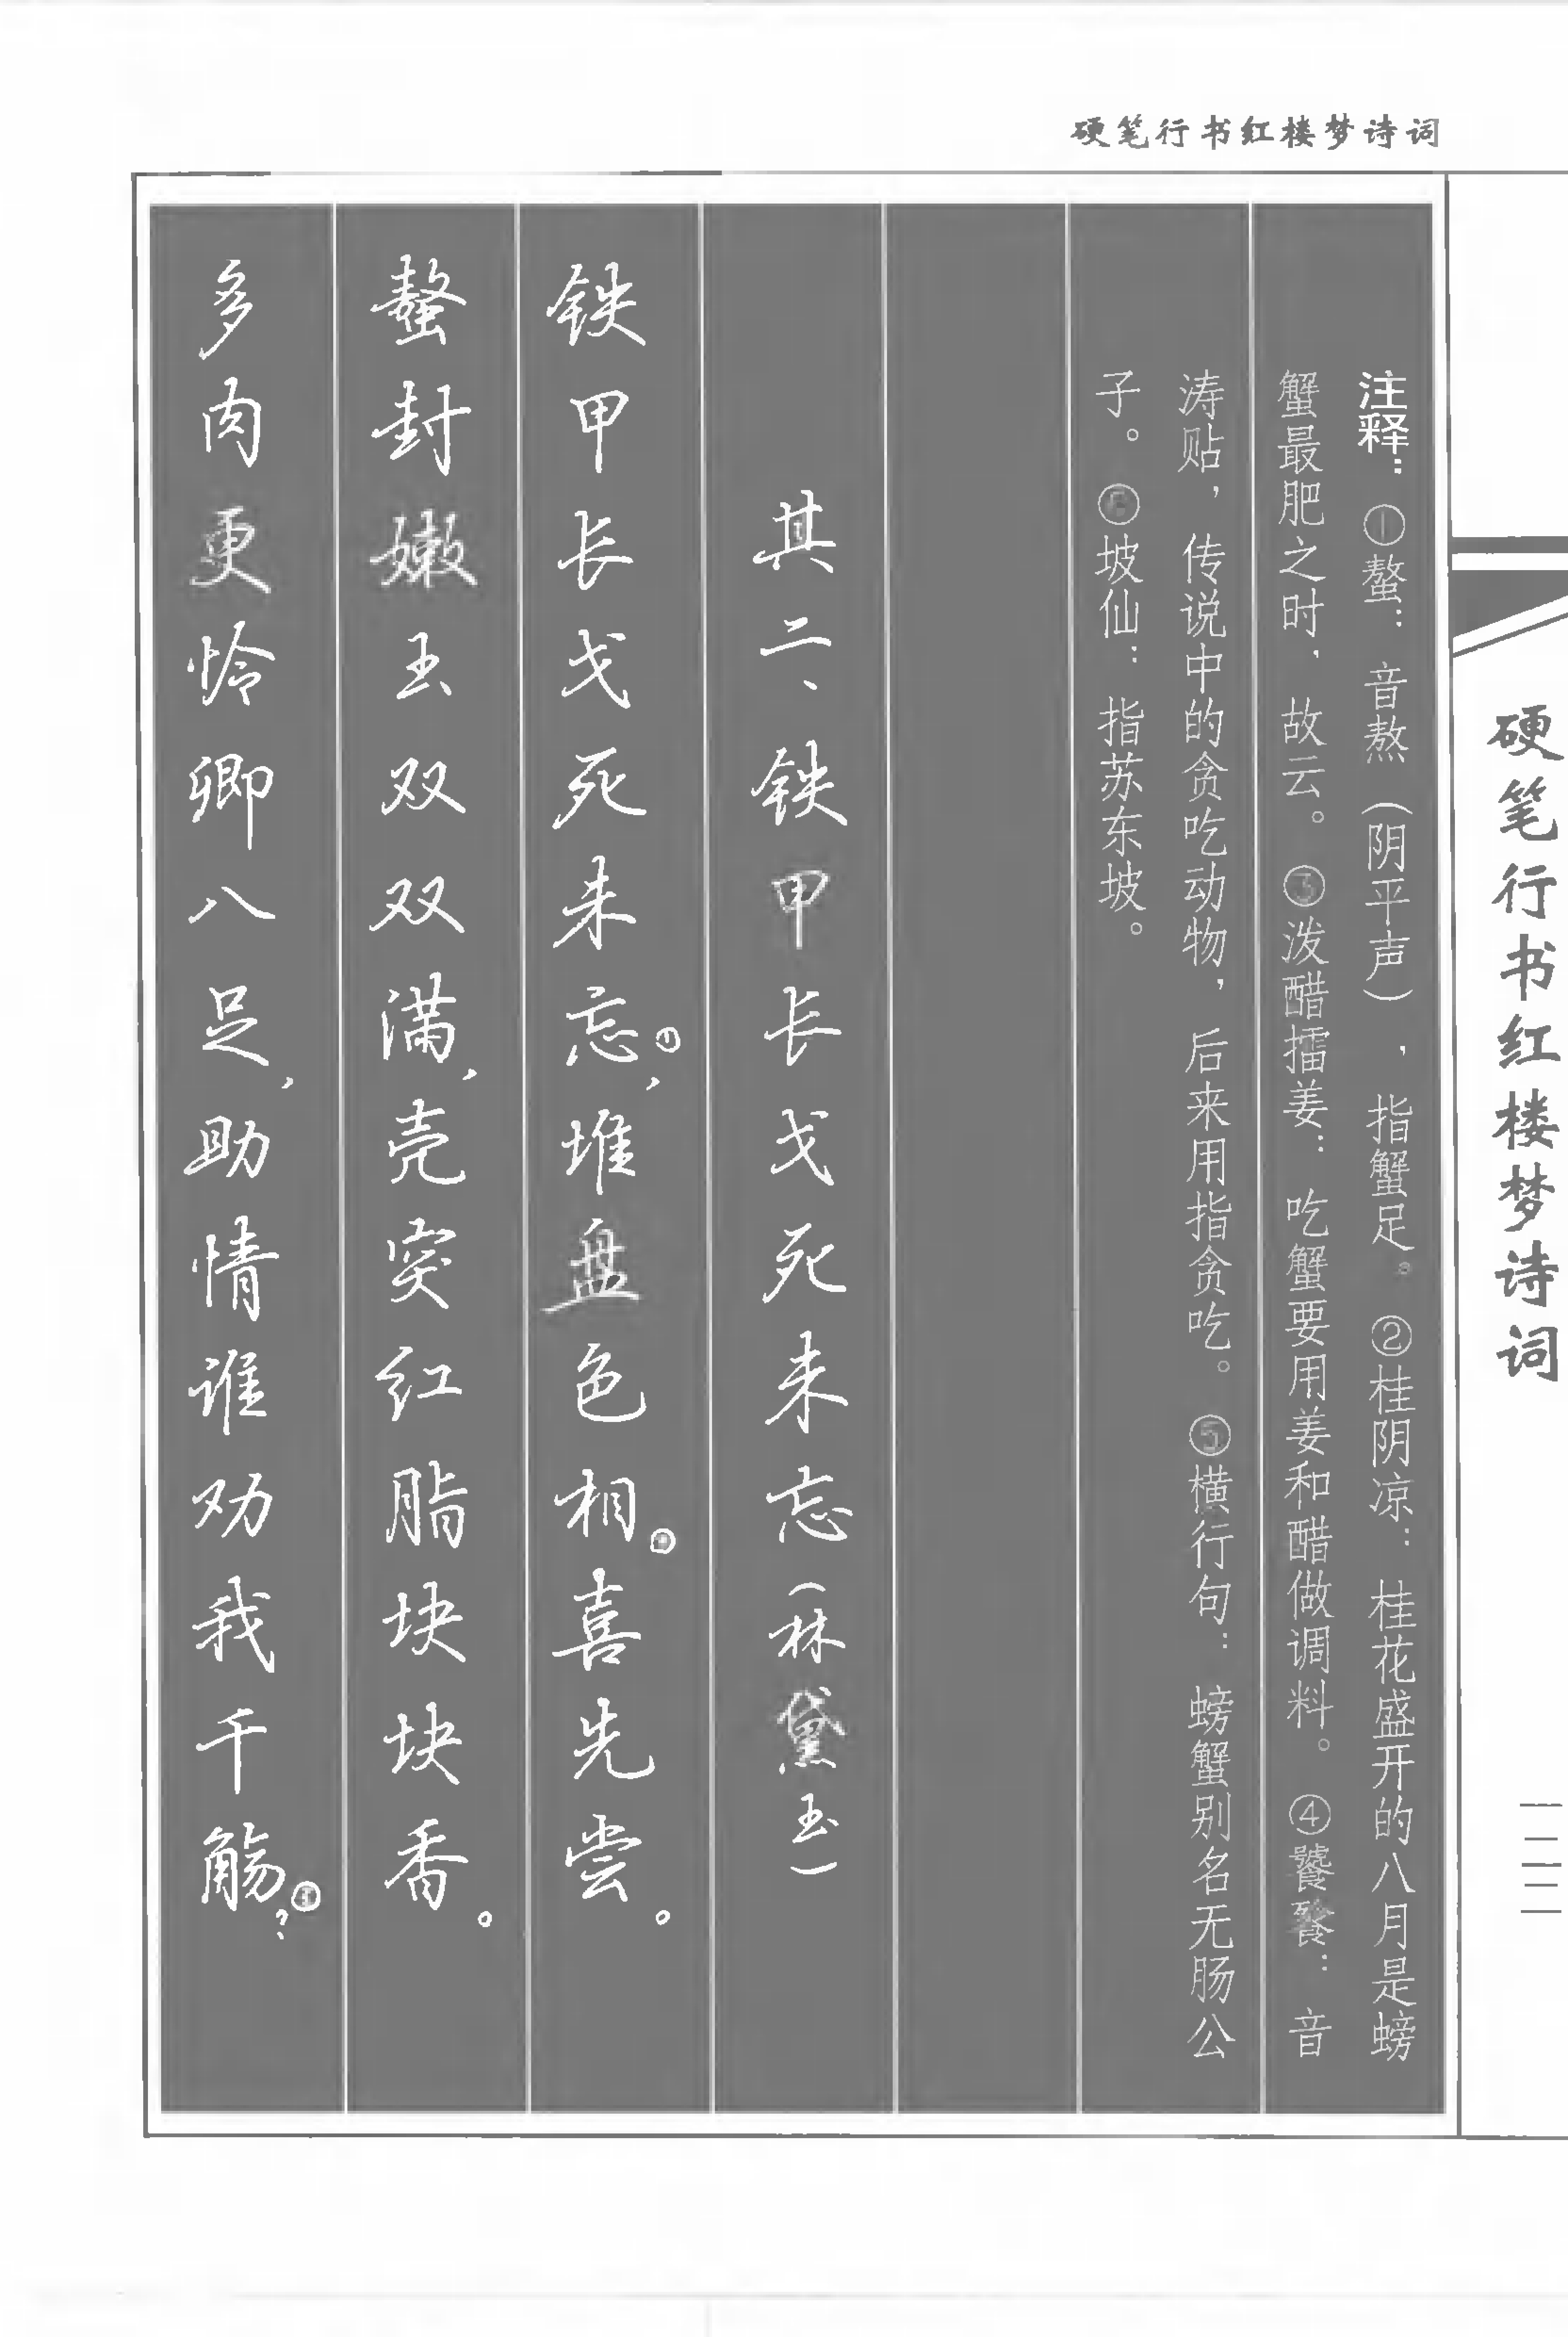 硬笔行书红楼梦诗词
注释：①螯：音熬（阴平声），指蟹足。②桂阴凉：桂花盛开的八月是螃
蟹最肥之时，故云。③泼醋擂姜：吃蟹要用姜和醋做调料。④饕餮：音
涛贴，传说中的贪吃动物，后来用指贪吃。⑤横行句：螃蟹别名无肠公
子。⑥坡仙：指苏东坡。
其二、铁甲长戈死未忘（林黛玉）
铁甲长戈死未忘①，堆盘色相②喜先尝。
螯封嫩玉双双满，壳突红脂块块香。
多肉更怜卿八足，助情谁劝我千觞③？
硬笔行书红楼梦诗词